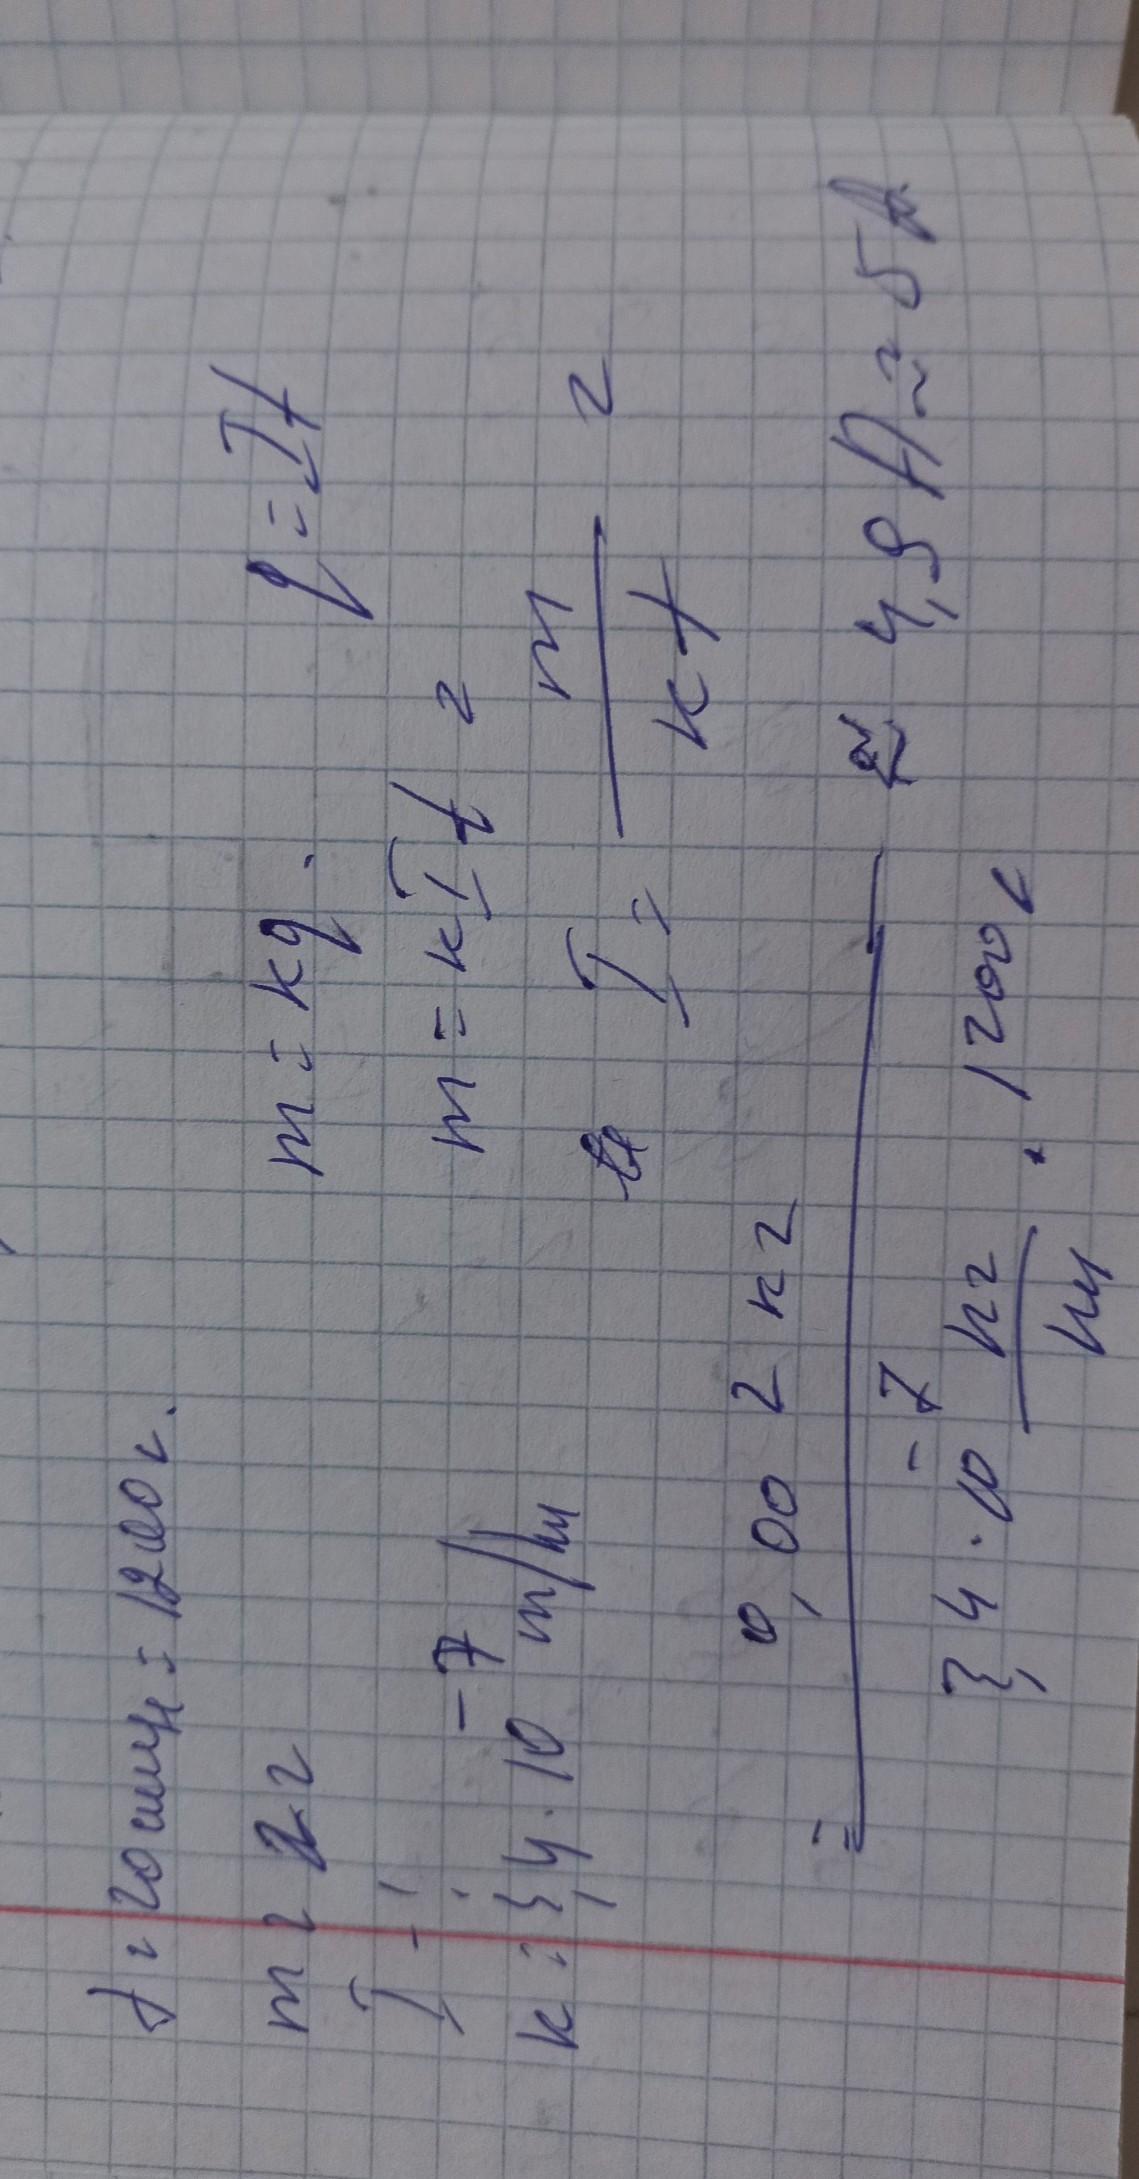 t = 20 мин = 1200 с.
m = 2 г
I - ?
k = 3,4 · 10⁻⁷ m/Кл
m = kq. q = It
m = kIt =
I = m / kt =
= 0,002 кг / 3,4 · 10⁻⁷ кг/Кл · 1200 с ≈ 4,9 А ≈ 5 А